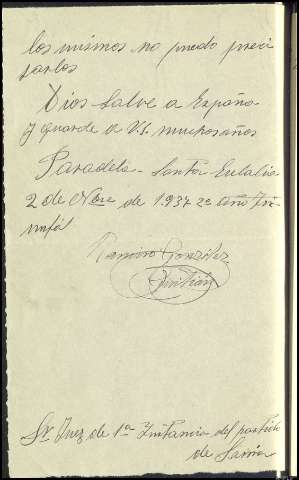 los mismos no puedo preci
sarlos
Dios Salve a España
y guarde a V.S. muchos años
Paradela - Santa Eulalia
2 de Nbre de 1.937 2º año Triu
nfal
Ramiro González
Quintián
Sr. Juez de 1ª Instancia del partido
de Sarria